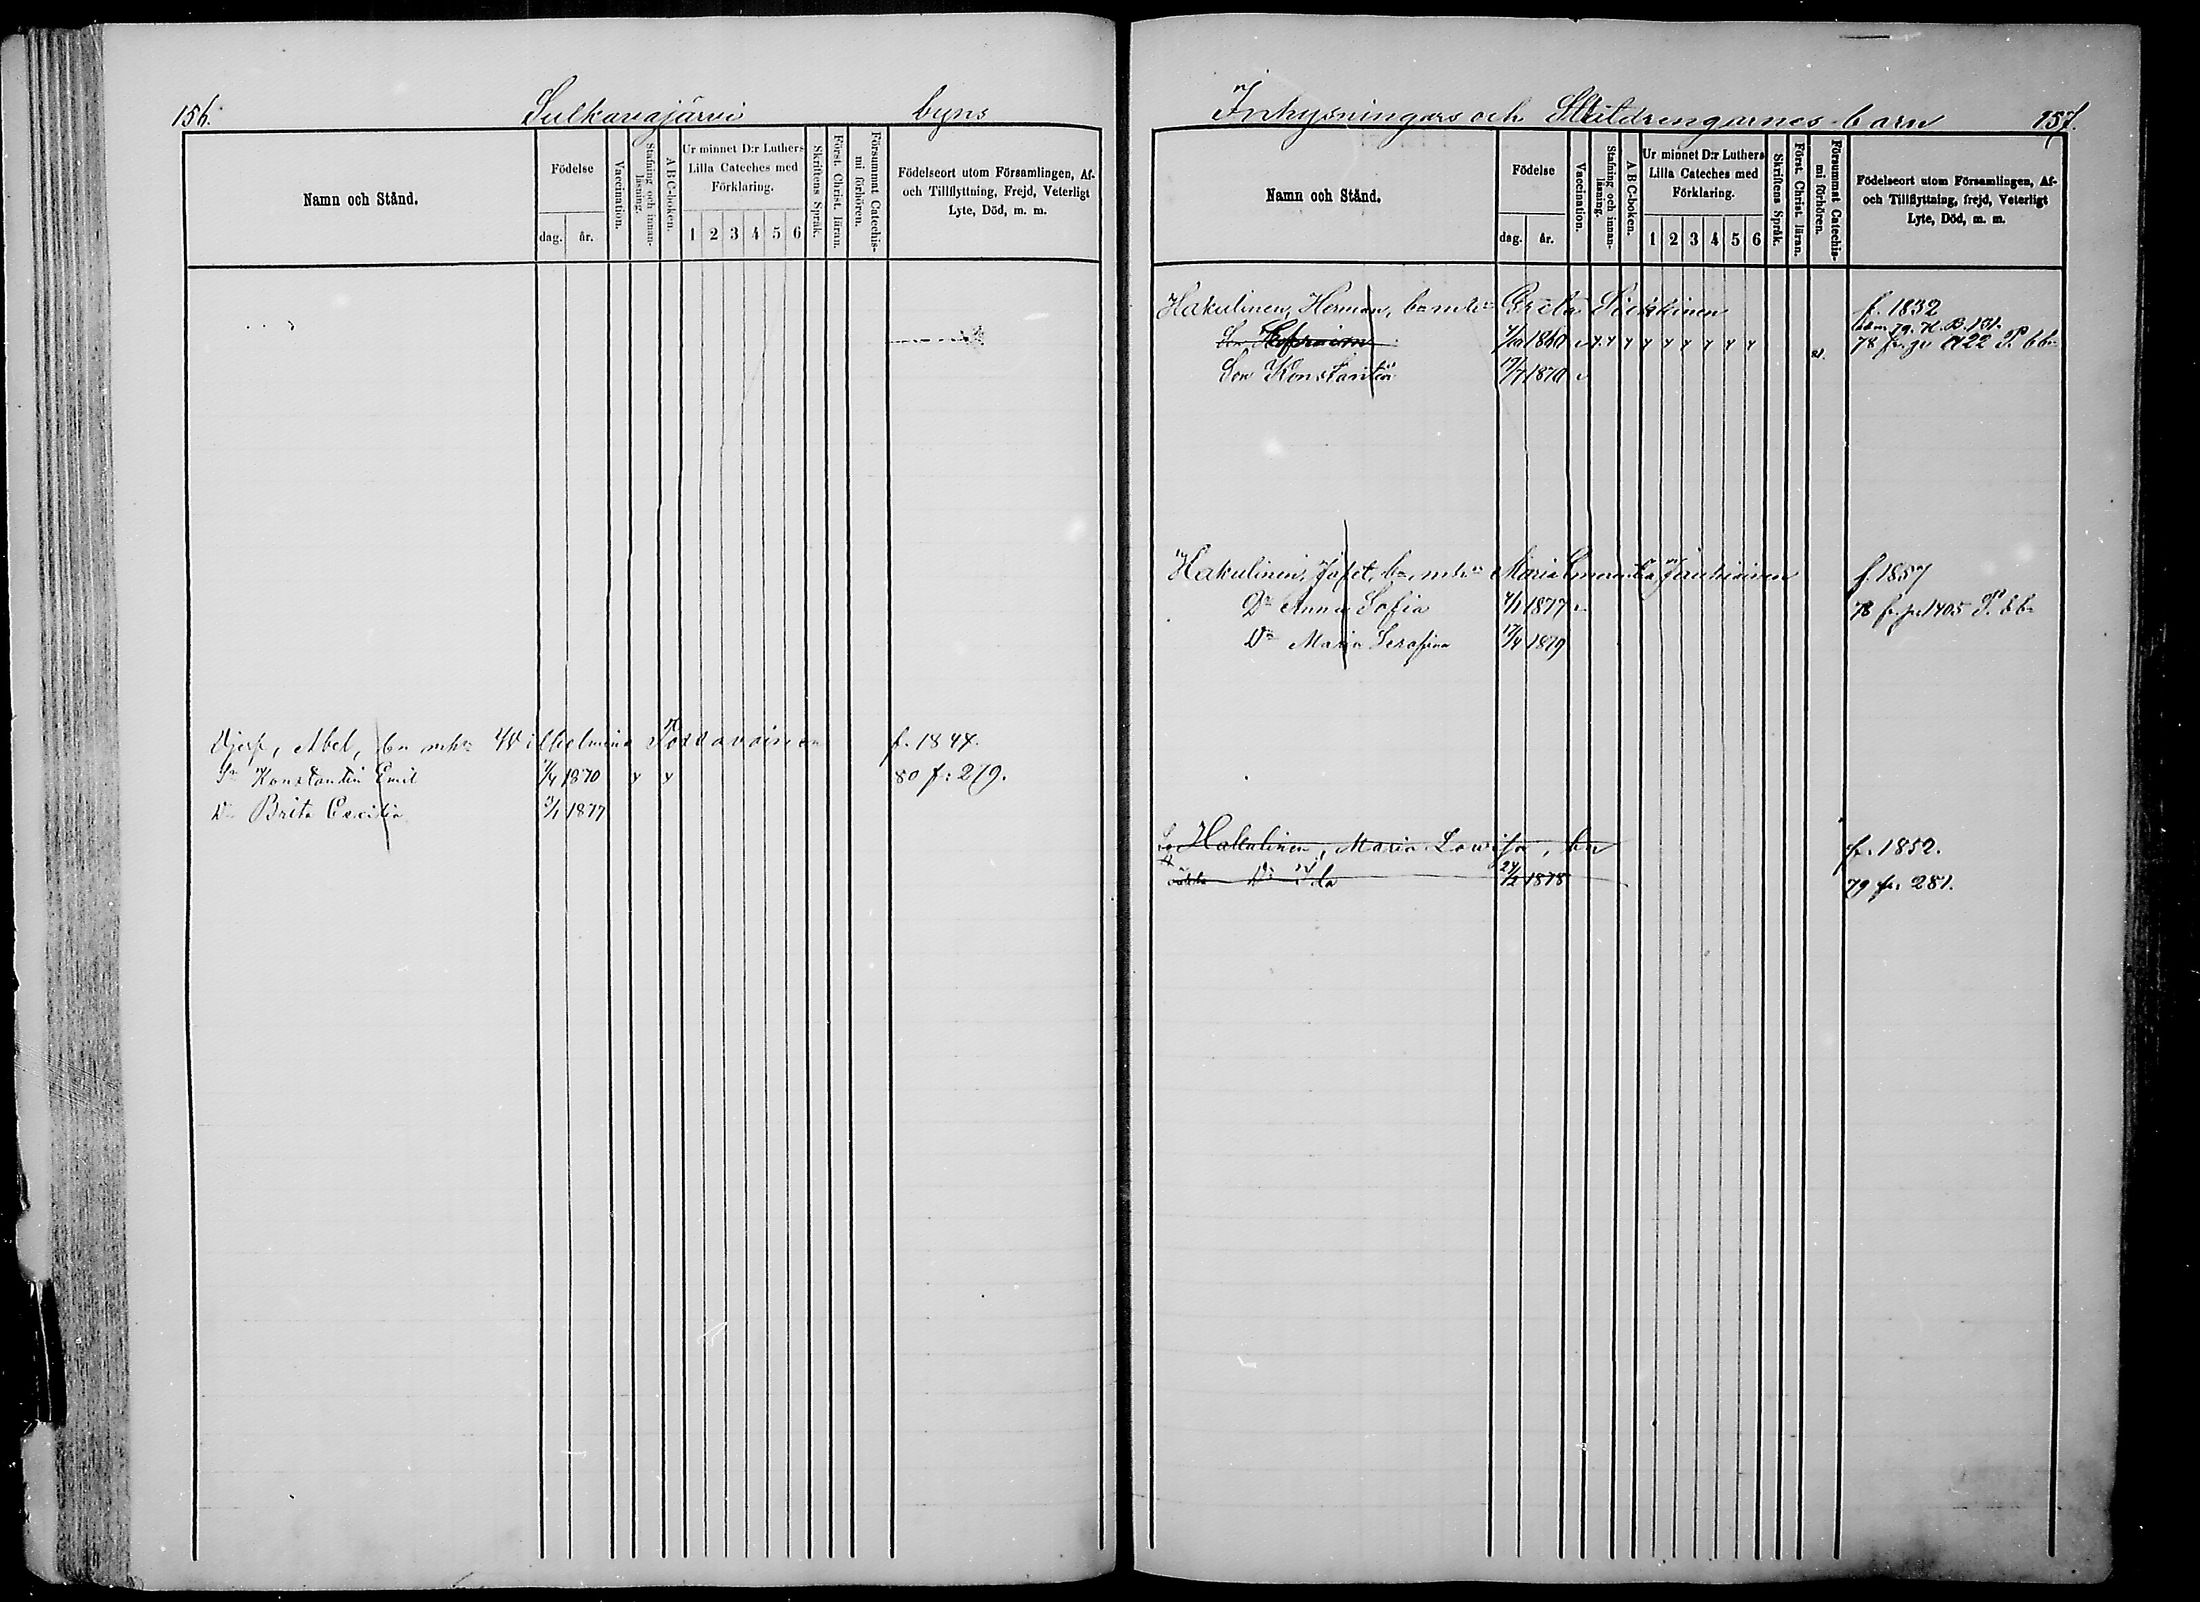 156.
Sulkavajärvi byns
Namn och Stånd.
Födelse
dag.
år.
Vaccination.
Stafning och innan-
läsning.
A B C-boken.
Ur minnet D:r Luthers
Lilla Cateches med
Förklaring.
1 2 3 4 5 6
Skriftens Språk.
Först. Christ. läran.
Försummat Catechis-
mi förhören.
Födelseort utom Församlingen, Af-
och Tillflyttning, Frejd, Veterligt
Lyte, Död, m. m.
Abel, bn mhu Wilhelmina f. 1844.
Sn Konstantin Emil 1870 y y 80 f: 279.
Dr Brita Cecilia 3/1 1877
Inhysningars och Muldrengarnes barn
157.
Namn och Stånd.
Födelse
dag.
år.
Vaccination.
Stafning och innan-
läsning.
A B C-boken.
Ur minnet D:r Luthers
Lilla Cateches med
Förklaring.
1 2 3 4 5 6
Skriftens Språk.
Först. Christ. läran.
Försummat Catechis-
mi förhören.
Födelseort utom Församlingen, Af-
och Tillflyttning, frejd, Veterligt
Lyte, Död, m. m.
Hakulinen, Herman, bn mhu Greta f. 1832
79. H. B. 131.
Son 1860 y y y y y y y y 78 fr. 1122 P. bb
Son Konstantin 17/7 1870
Hakulinen, Jafet, bn mhu Maria f. 1857
Dr Anna Sofia 4/1 1877 78 fr. p. 1405 P. bb
Dr Maria Serafina 17/4 1879
Hakulinen, Maria Lowisa, bn f. 1852.
Dr Ida 24/2 1878 79 fr. 281.